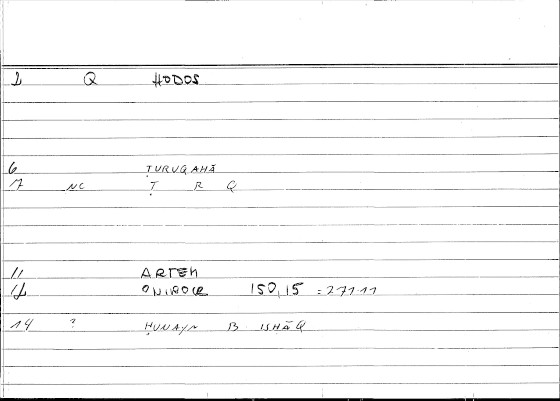 1 Q HODOS
6 ṬURUQAHĀ
7 NC Ṭ R Q
11 ARTEM
12 ONIROCR 150,15 = 27111
14 ? ḤUNAYN B ISHĀQ